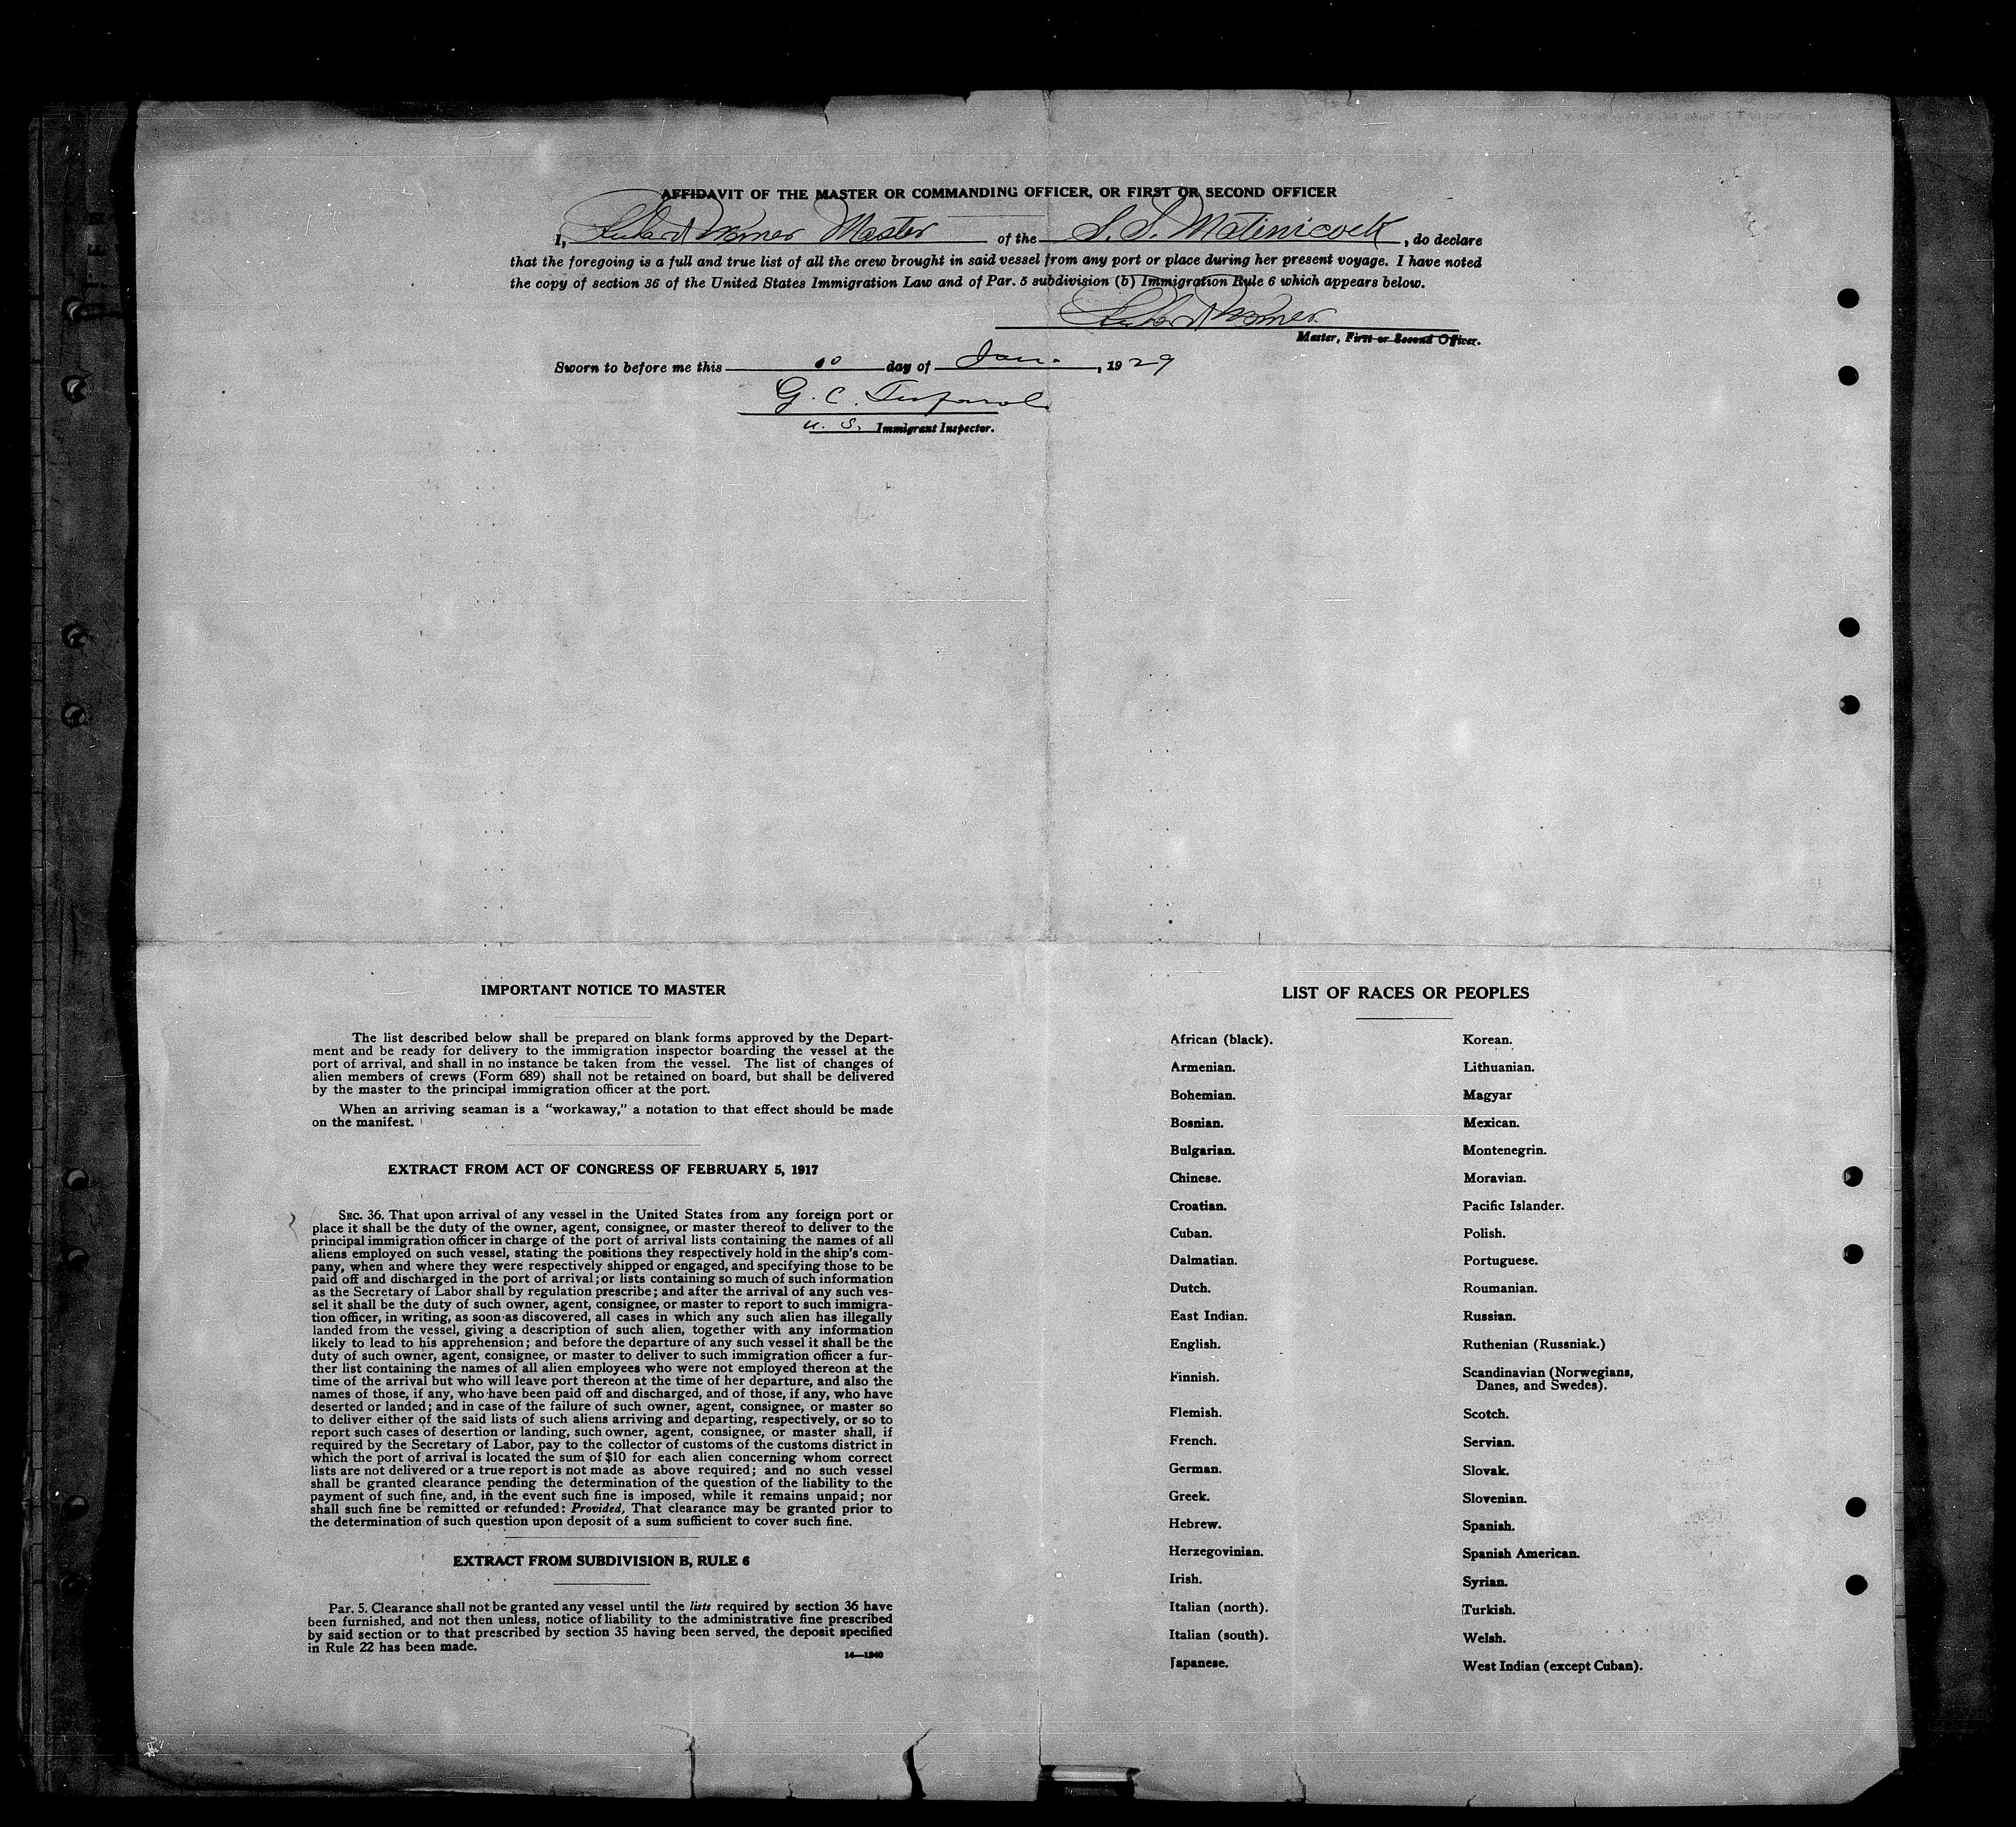 AFFIDAVIT OF THE MASTER OR COMMANDING OFFICER, OR FIRST OR SECOND OFFICER
I, Master of the S. S. Matinicock, do declare
that the foregoing is a full and true list of all the crew brought in said vessel from any port or place during her present voyage. I have noted
the copy of section 36 of the United States Immigration Law and of Par. 5 subdivision (b) Immigration Rule 6 which appears below.
Master, First or Second Officer.
Sworn to before me this day of Jan., 1929
G. C.
U. S. Immigrant Inspector.
IMPORTANT NOTICE TO MASTER
The list described below shall be prepared on blank forms approved by the Depart-
ment and be ready for delivery to the immigration inspector boarding the vessel at the
port of arrival, and shall in no instance be taken from the vessel. The list of changes of
alien members of crews (Form 689) shall not be retained on board, but shall be delivered
by the master to the principal immigration officer at the port.
When an arriving seaman is a "workaway," a notation to that effect should be made
on the manifest.
EXTRACT FROM ACT OF CONGRESS OF FEBRUARY 5, 1917
SEC. 36. That upon arrival of any vessel in the United States from any foreign port or
place it shall be the duty of the owner, agent, consignee, or master thereof to deliver to the
principal immigration officer in charge of the port of arrival lists containing the names of all
aliens employed on such vessel, stating the positions they respectively hold in the ship's com-
pany, when and where they were respectively shipped or engaged, and specifying those to be
paid off and discharged in the port of arrival; or lists containing so much of such information
as the Secretary of Labor shall by regulation prescribe; and after the arrival of any such ves-
sel it shall be the duty of such owner, agent, consignee, or master to report to such immigra-
tion officer, in writing, as soon as discovered, all cases in which any such alien has illegally
landed from the vessel, giving a description of such alien, together with any information
likely to lead to his apprehension; and before the departure of any such vessel it shall be the
duty of such owner, agent, consignee, or master to deliver to such immigration officer a fur-
ther list containing the names of all alien employees who were not employed thereon at the
time of the arrival but who will leave port thereon at the time of her departure, and also the
names of those, if any, who have been paid off and discharged, and of those, if any, who have
deserted or landed; and in case of the failure of such owner, agent, consignee, or master so
to deliver either of the said lists of such aliens arriving and departing, respectively, or so to
report such cases of desertion or landing, such owner, agent, consignee, or master shall, if
required by the Secretary of Labor, pay to the collector of customs of the customs district in
which the port of arrival is located the sum of $10 for each alien concerning whom correct
lists are not delivered or a true report is not made as above required; and no such vessel
shall be granted clearance pending the determination of the question of the liability to the
payment of such fine, and, in the event such fine is imposed, while it remains unpaid; nor
shall such fine be remitted or refunded: Provided, That clearance may be granted prior to
the determination of such question upon deposit of a sum sufficient to cover such fine.
EXTRACT FROM SUBDIVISION B, RULE 6
Par. 5. Clearance shall not be granted any vessel until the lists required by section 36 have
been furnished, and not then unless, notice of liability to the administrative fine prescribed
by said section or to that prescribed by section 35 having been served, the deposit specified
in Rule 22 has been made.
14—1240
LIST OF RACES OR PEOPLES
African (black).
Armenian.
Bohemian.
Bosnian.
Bulgarian.
Chinese.
Croatian.
Cuban.
Dalmatian.
Dutch.
East Indian.
English.
Finnish.
Flemish.
French.
German.
Greek.
Hebrew.
Herzegovinian.
Irish.
Italian (north).
Italian (south).
Japanese.
Korean.
Lithuanian.
Magyar
Mexican.
Montenegrin.
Moravian.
Pacific Islander.
Polish.
Portuguese.
Roumanian.
Russian.
Ruthenian (Russniak.)
Scandinavian (Norwegians,
Danes, and Swedes).
Scotch.
Servian.
Slovak.
Slovenian.
Spanish.
Spanish American.
Syrian.
Turkish.
Welsh.
West Indian (except Cuban).